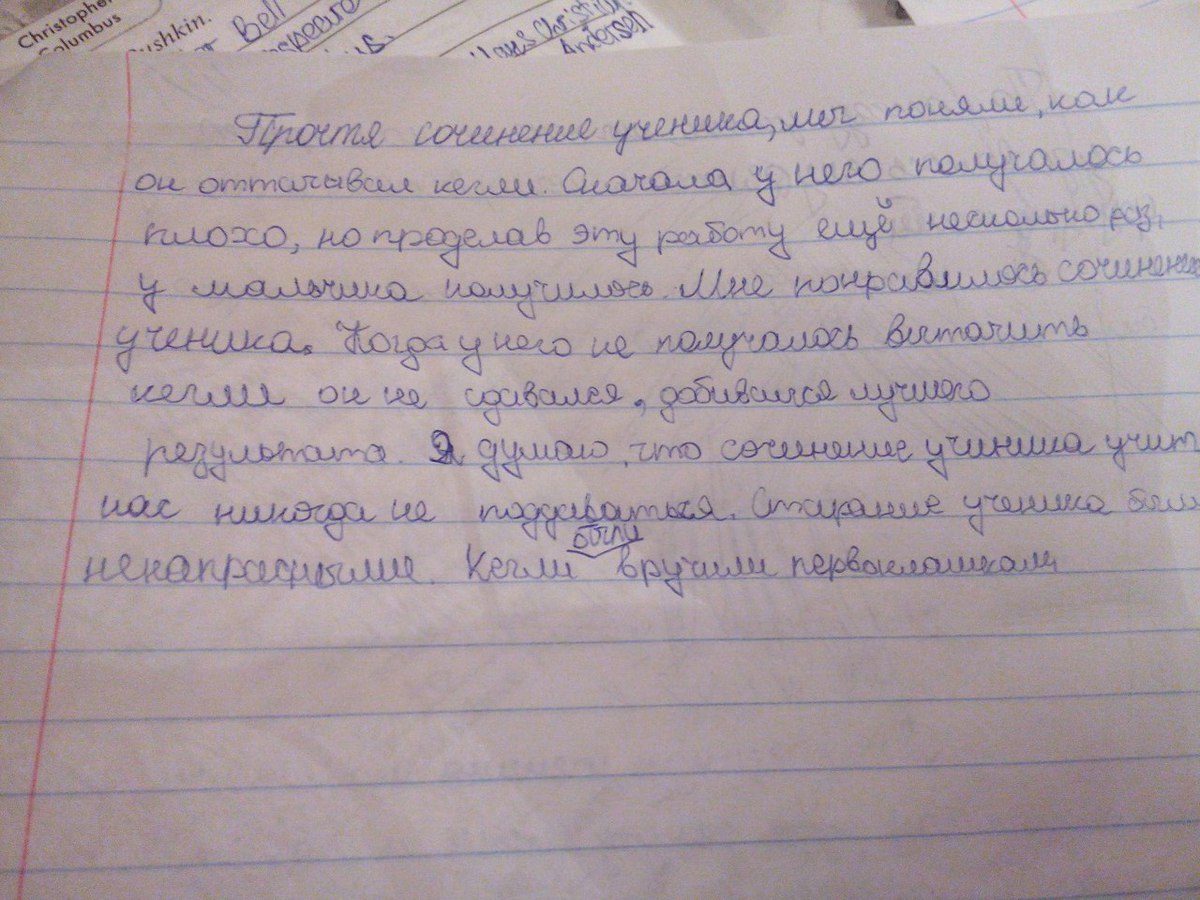 Christopher
Columbus
ushkin.
Bell
Hans Christian
Andersen
Прочтя сочинение ученика, мы поняли, как
он оттачывал кегли. Сначала у него получалось
плохо, но проделав эту работу ещё несколько раз,
у мальчика получилось. Мне понравилось сочинение
ученика. Когда у него не получалось выточить
кегли он не сдавался, добивался лучшего
результата. Я думаю, что сочинение учиника учит
нас никогда не поддаваться. Старание ученика были
были
ненапрасными. Кегли вручили первоклашкам